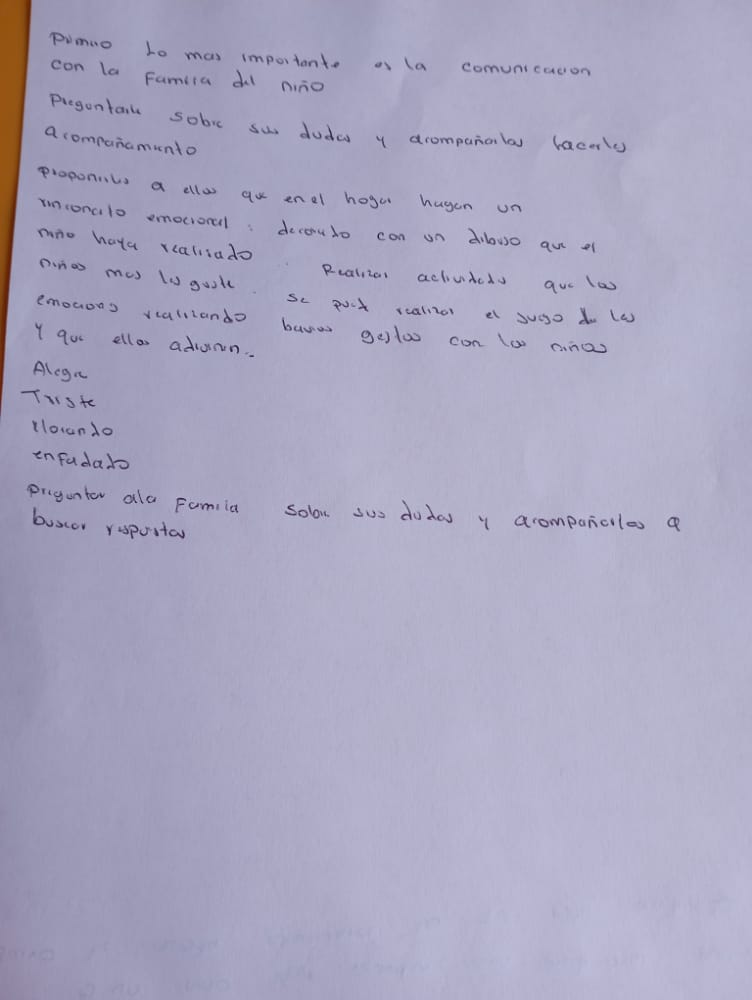 Primero Lo mas importante es la comunicacion
con la Familia del niño
Preguntarle sobre sus dudas y acompañarlos hacerles
acompañamiento
Proponerles a ellos que en el hogar hagan un
rinconcito emocional : decorado con un dibujo que el
niño haya realisado Realizar actividades que los
niños mas les guste. Se puede realizar el juego de las
emociones realizando barios gestos con los niños
Y que ellos adivinen..
Alegre
Triste
llorando
enfadado
preguntar ala Familia sobre sus dudas y acompañarlos a
buscar respuestas